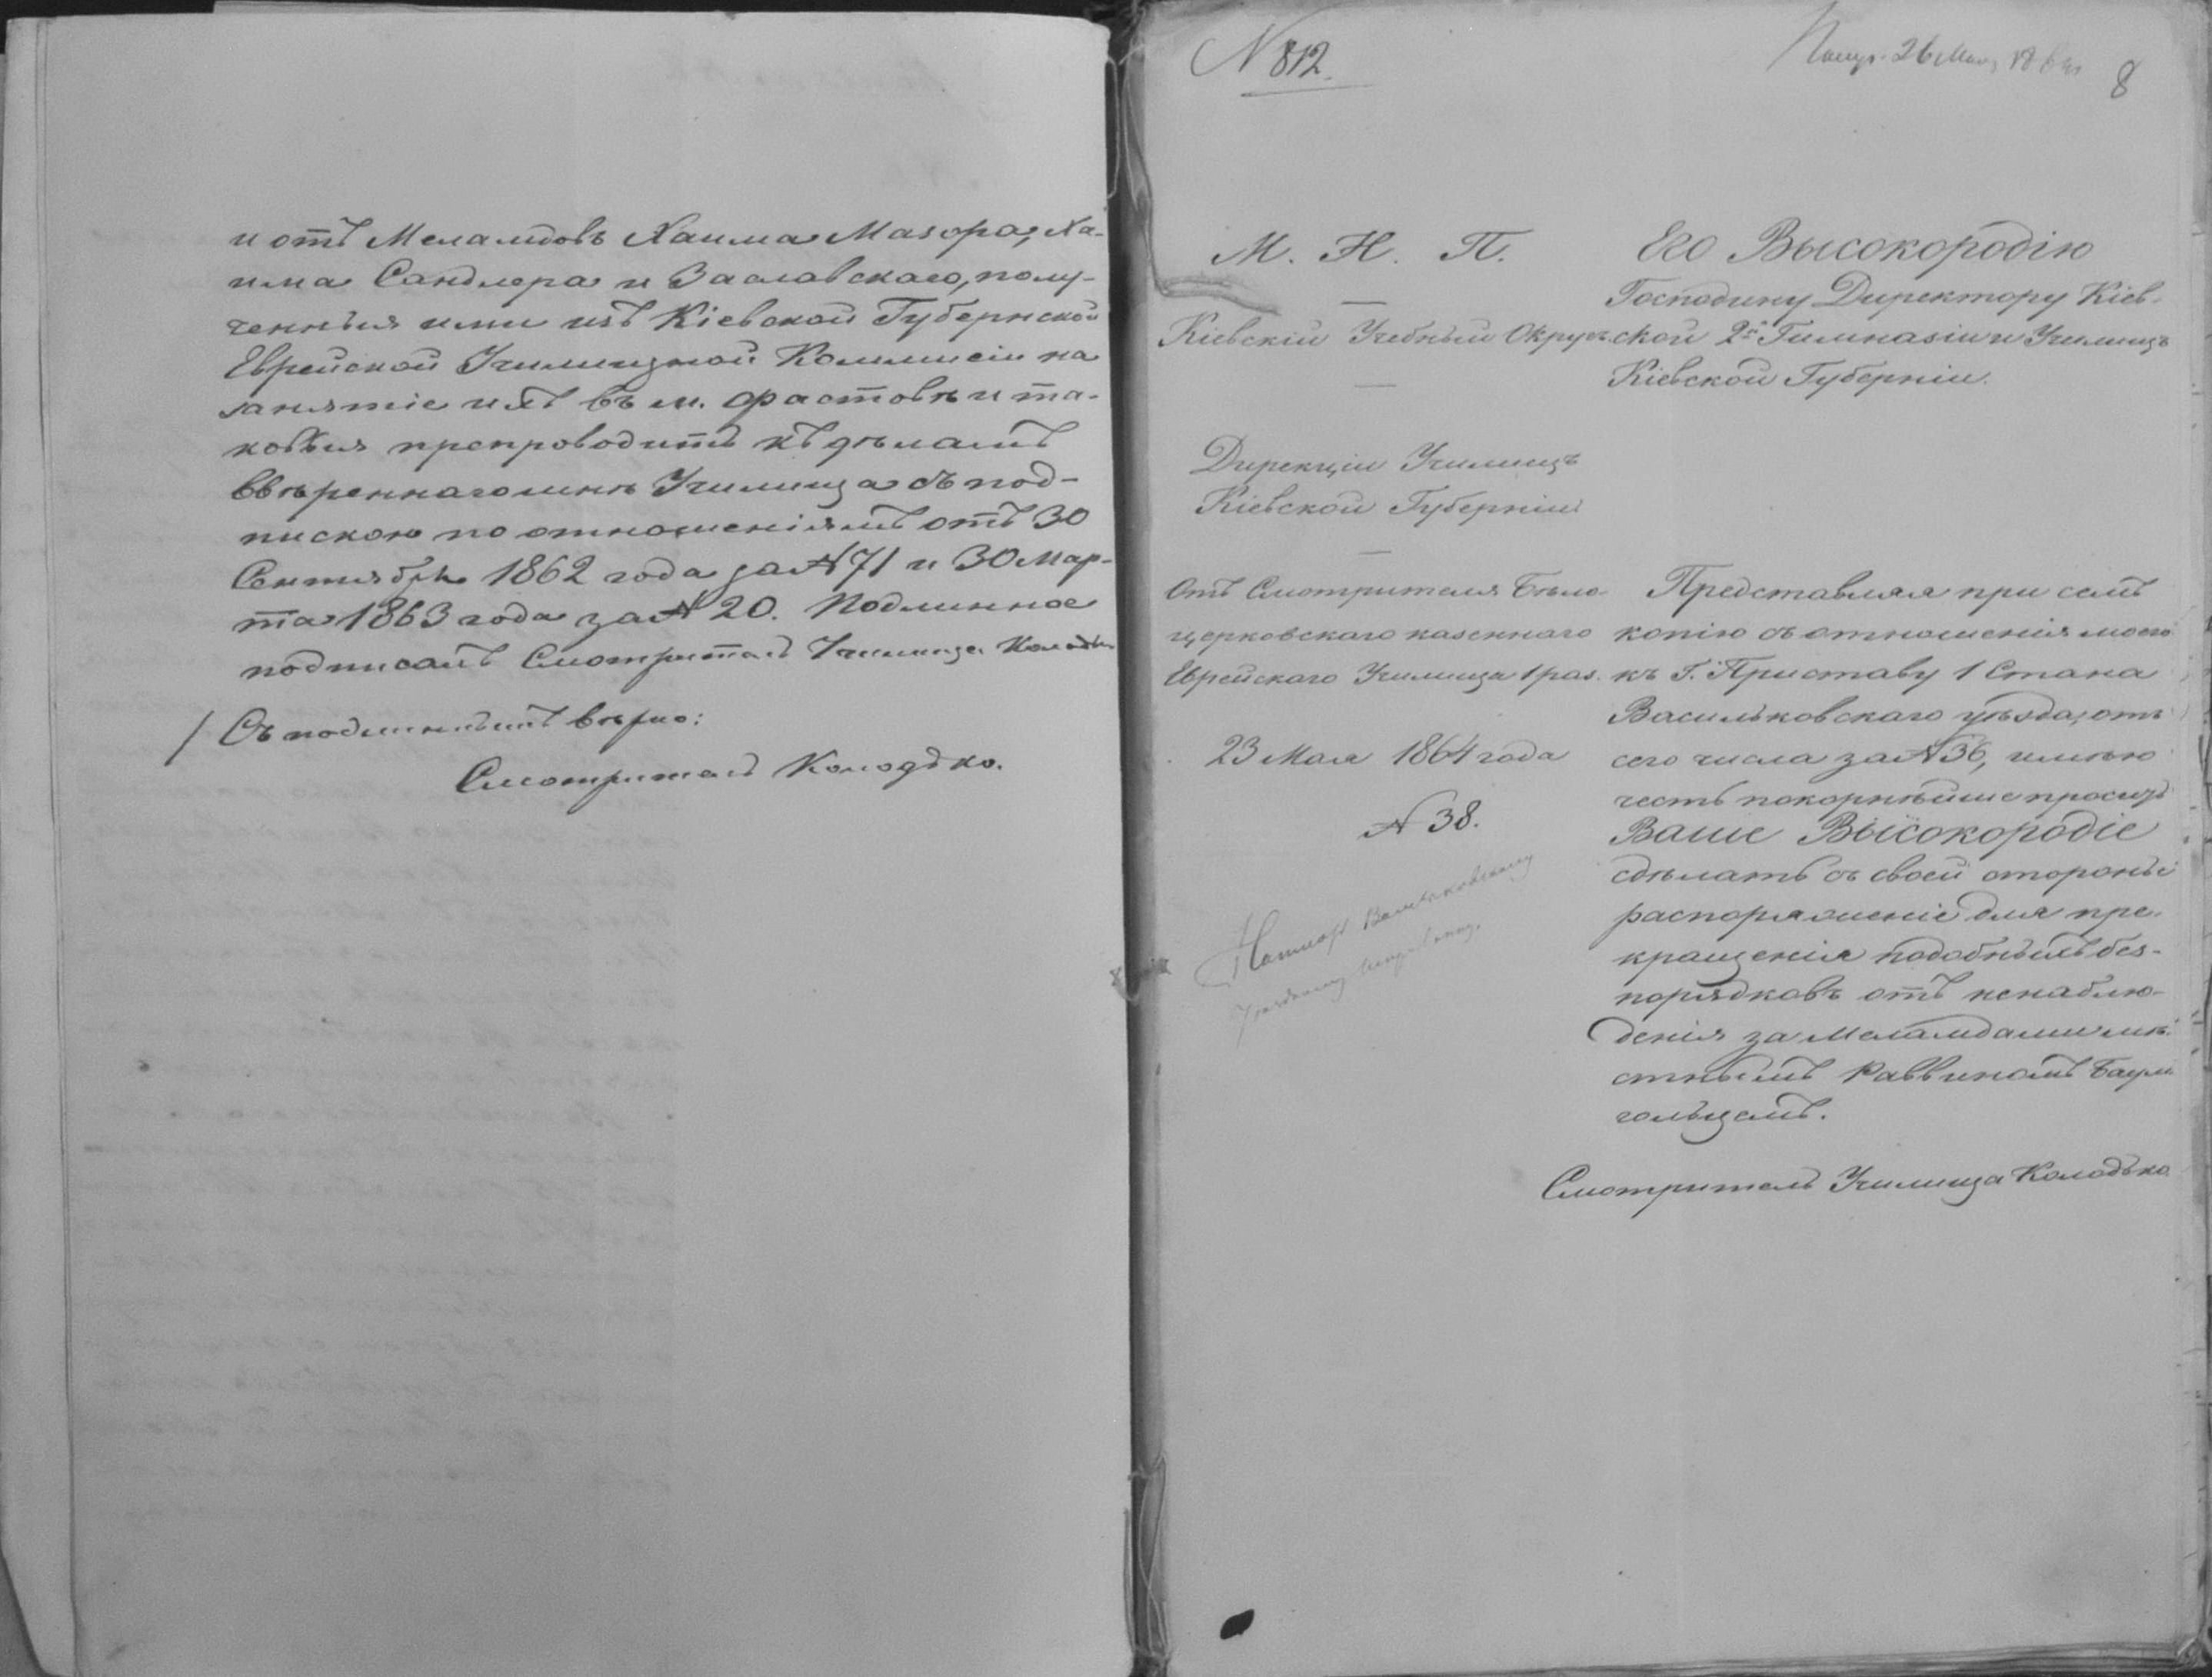 и отъ Меламдовъ Хаима Мазора, Ха-
има Сандлера и Заславскаго, полу-
ченныя ими изъ Кіевской Губернской
Еврейской Училищной Коммисіи на
занятіе ихъ въ м. Фастовѣ и та-
ковыя препроводить къ дѣламъ
ввѣреннаго мнѣ Училища съ под-
пискою по отношеніямъ отъ 30
Сентября 1862 года за № 71 и 30 Мар-
та 1863 года за № 20. Подлинное
подписалъ Смотритель Училища Колодько
Съ подлиннымъ вѣрно:
Смотритель Колодько.
N 812.
26 Мая 1864
8
М. Н. П.
Кіевскій Учебный Округъ
Дирекціи Училищъ
Кіевской Губерніи
Отъ Смотрителя Бѣло-
церковскаго казеннаго
Еврейскаго Училища 1 раз.
23 Мая 1864 года
№ 38.
Васильковскому
Его Высокородію
Господину Директору Кіев-
ской 2й Гимназіи и Училищъ
Кіевской Губерніи.
Представляя при семъ
копію съ отношенія моего
къ Г. Приставу 1 Стана
Васильковскаго уѣзда, отъ
сего числа за № 36, имѣю
честь покорнѣйше просить
Ваше Высокородіе
сдѣлать съ своей стороны
распоряженіе для пре-
кращенія подобныхъ без-
порядковъ отъ ненаблю-
денія за Меламдами мѣ-
стнымъ Раввиномъ Баум
гольцемъ.
Смотритель Училища Колодько